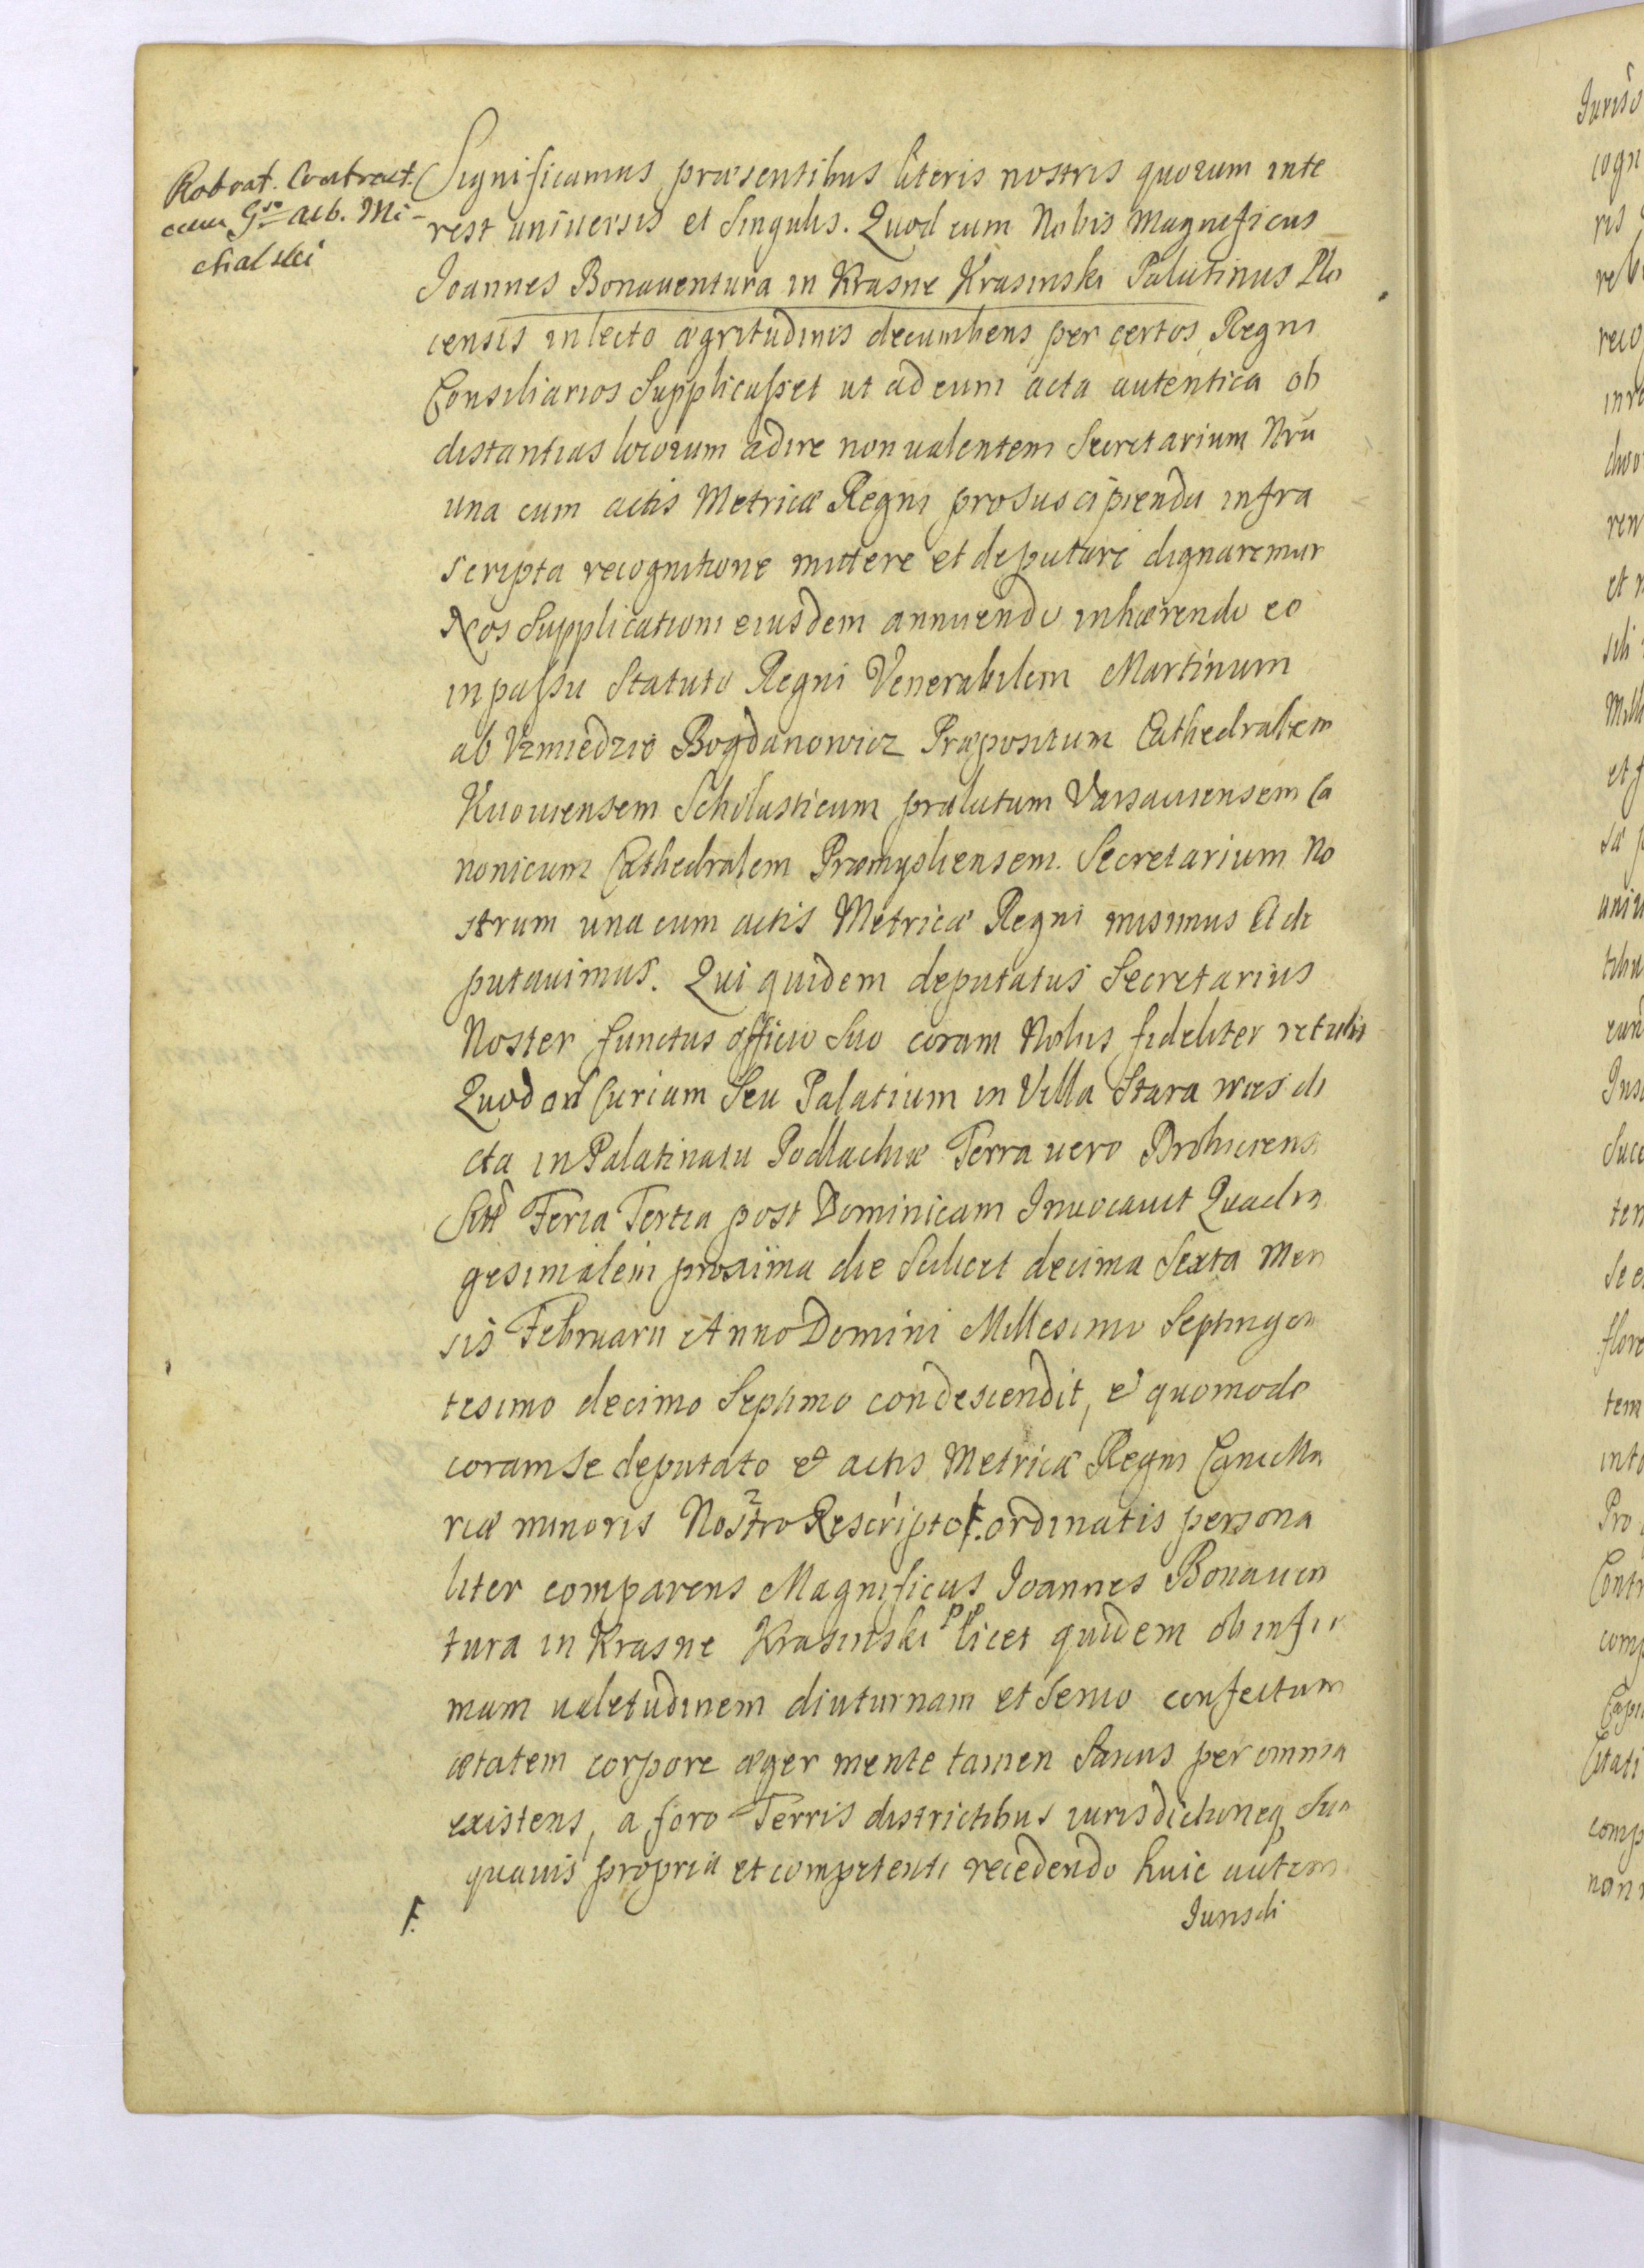 Roborat. Contract.
cum Gso Alb. Mi-
chalski
Significamus præsentibus literis nostris quorum inte
rest universis et singulis. Quod cum Nobis Magnificus
Joannes Bonaventura in Krasne Krasinski Palatinus Plo
censis in lecto ægritudinis decumbens per certos Regni
Consiliarios Supplicasset ut ad eum acta autentica ob
distantias locorum adire non valentem Secretarium Nrũ
una cum actis Metricæ Regni pro suscipienda infra
scripta recognitione mittere et deputare dignaremur
Nos Supplicationi eiusdem annuendo inhærendo eo
in passu Statuto Regni Venerabilem Martinum
ab Uzmiedzie Bogdanowicz Præpositum Cathedralem
Kiioviensem Scholasticum prælatum Varsaviensem Ca
nonicum Cathedralem Præmysliensem Secretarium No
strum una cum actis Metricæ Regni misimus et de
putavimus. Qui quidem deputatus Secretarius
Noster functus officio Suo coram Nobis fideliter retulit
Quod ad Curiam Seu Palatium in Villa Stara wies di
cta in Palatinatu Podlachiæ Terra vero Drohicensi
Feria Tertia post Dominicam Invocavit Quadra
gesimalem proxima die Scilicet decima Sexta Men
sis Februarii Anno Domini Millesimo Septingen
tesimo decimo Septimo condescendit, et quomodo
coram se deputato et actis Metricæ Regni Cancella
riæ minoris Nostro Rescripto F. ordinatis persona
liter comparens Magnificus Joannes Bonaven
tura in Krasne Krasinski PP licet quidem ob infir
mam valetudinem diuturnam et Senio confectam
ætatem corpore æger mente tamen Sanus per omnia
existens, a foro Terris districtibus iurisdictioneq Sua
quavis propria et competenti recedendo huic autem
F.
Jurisdi